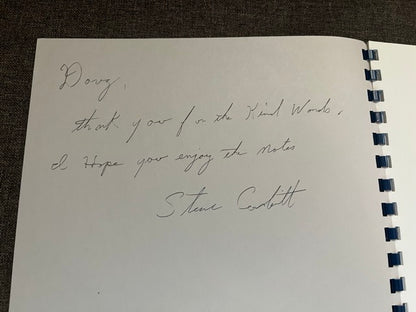 Doug,
thank you for the Kind Words.
I Hope you enjoy the notes
Steve